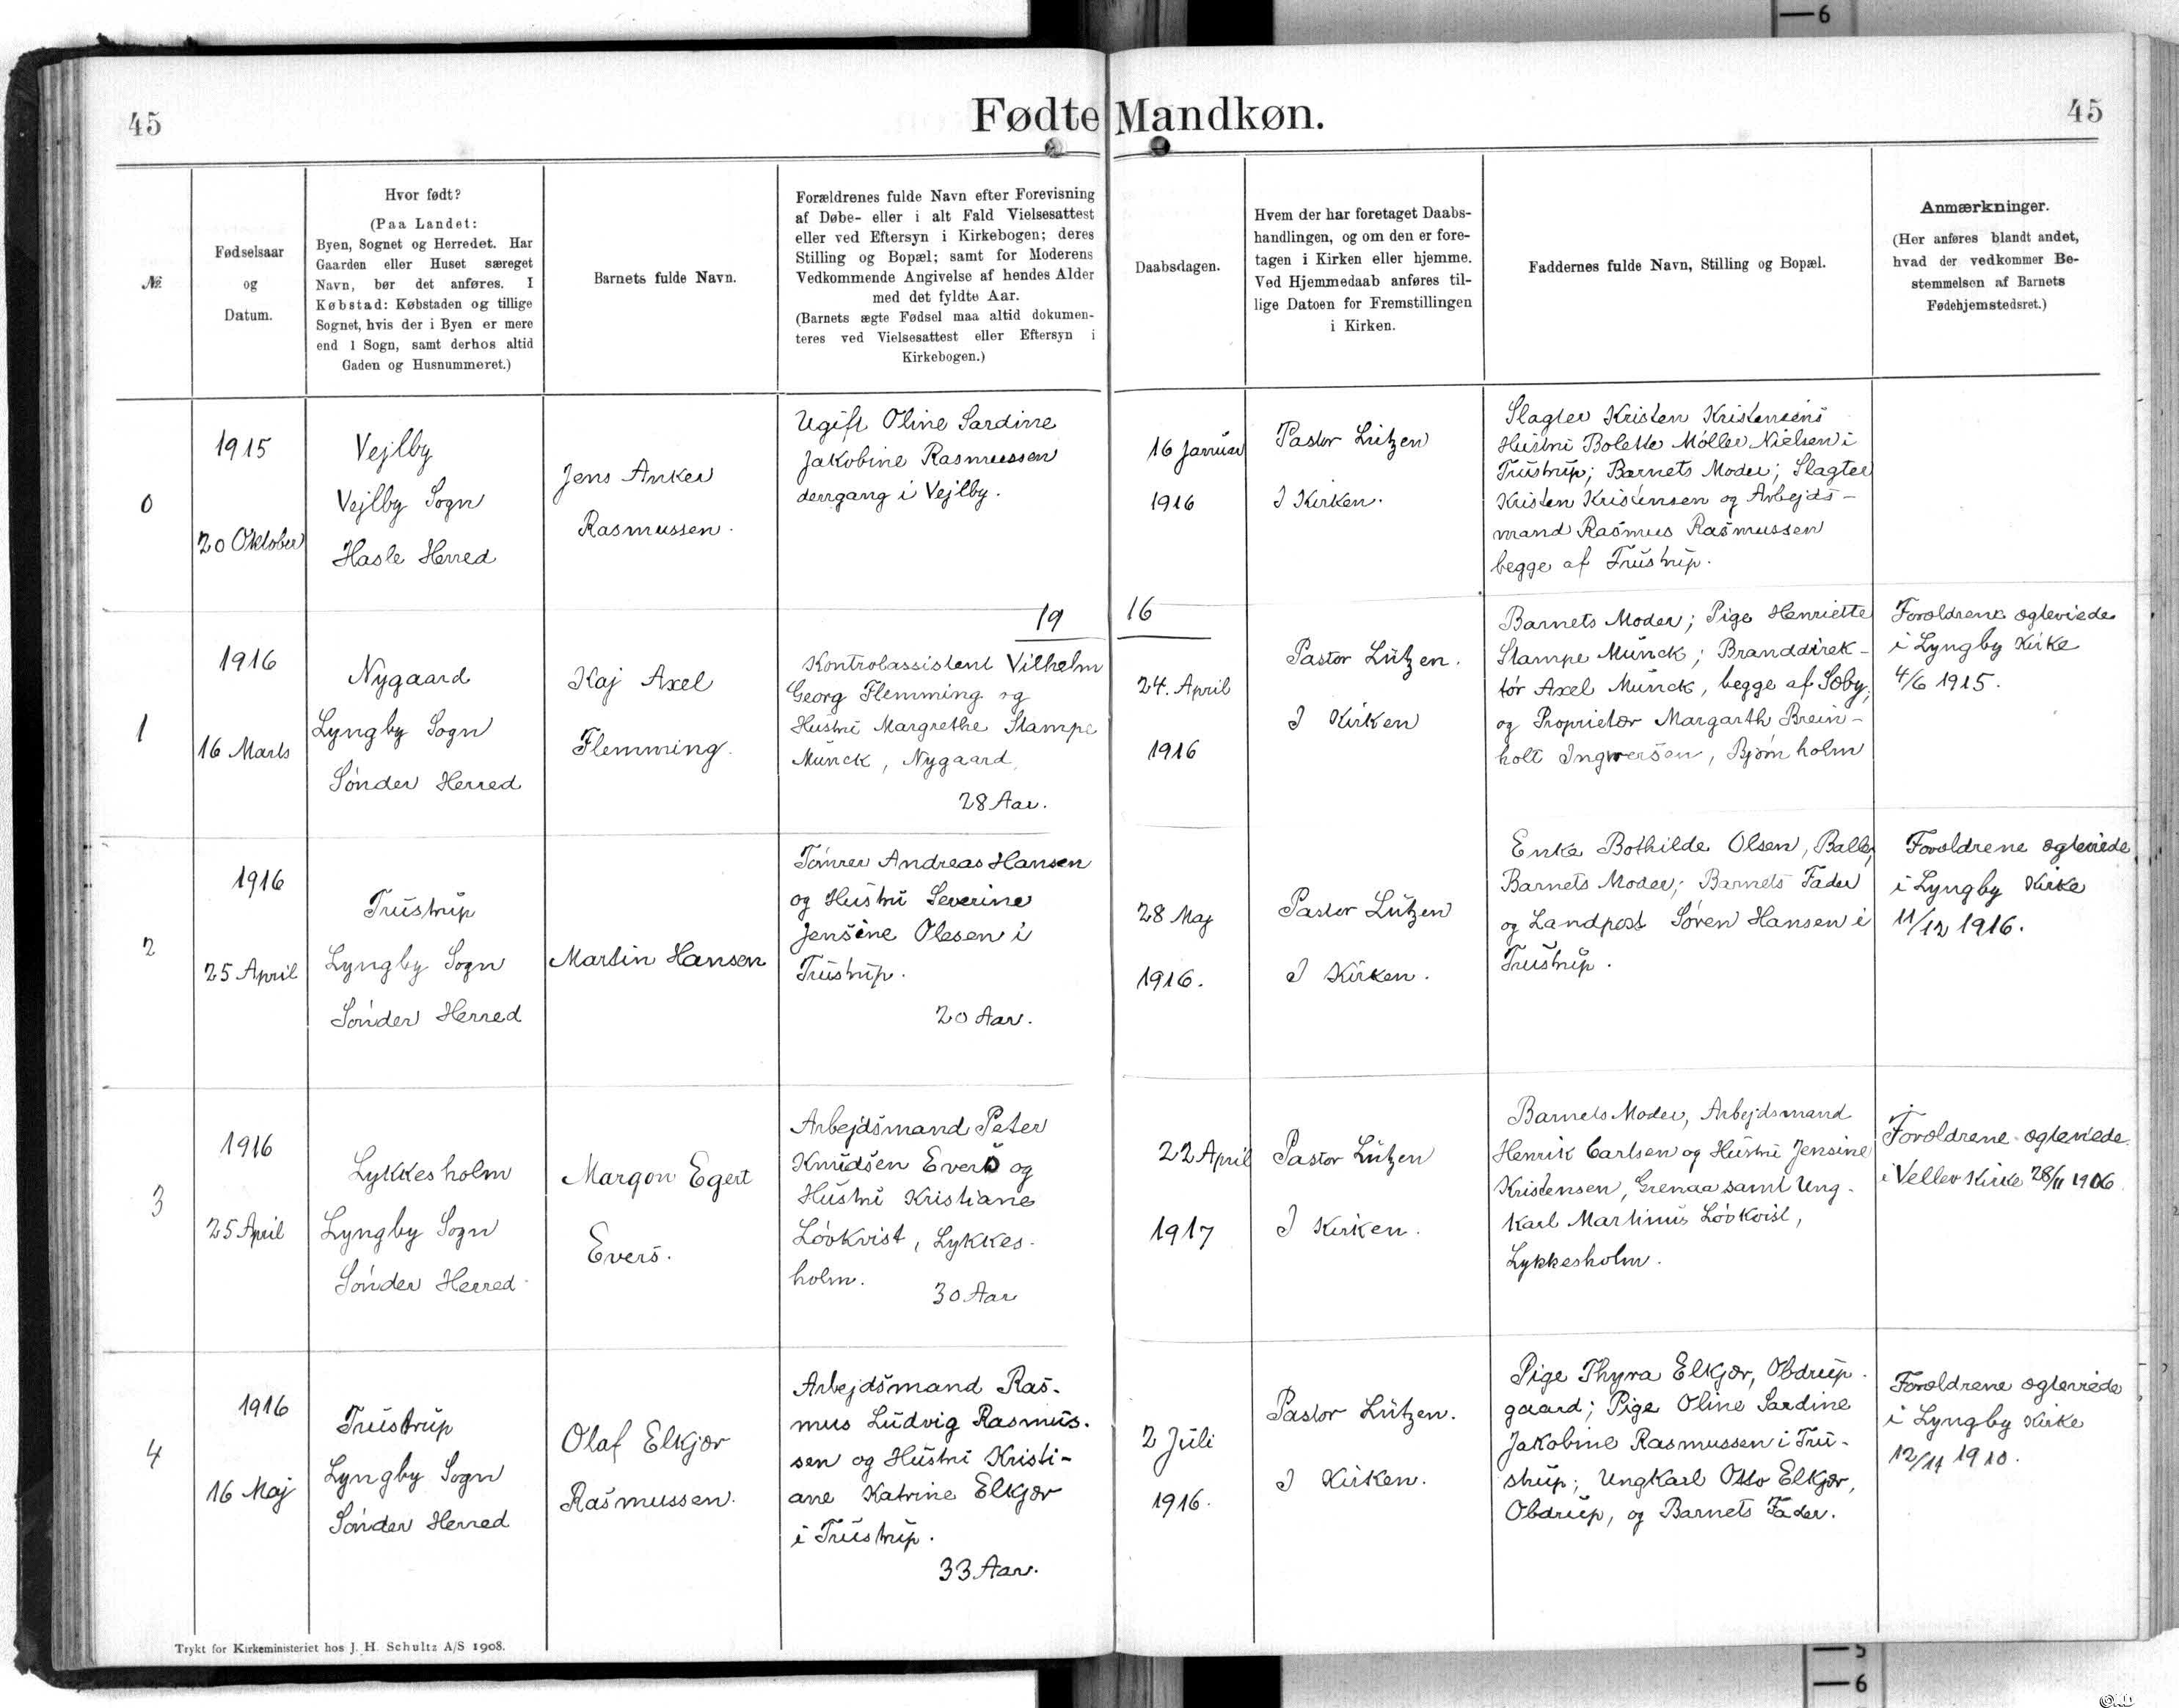 6
45
Fødte Mandkøn.
45
№
Fødselsaar
og
Datum.
Hvor født?
(Paa Landet:
Byen, Sognet og Herredet. Har
Gaarden eller Huset særeget
Navn, bør det anføres. I
Købstad: Købstaden og tillige
Sognet, hvis der i Byen er mere
end 1 Sogn, samt derhos altid
Gaden og Husnummeret.)
Barnets fulde Navn.
Forældrenes fulde Navn efter Forevisning
af Døbe- eller i alt Fald Vielsesattest
eller ved Eftersyn i Kirkebogen; deres
Stilling og Bopæl; samt for Moderens
Vedkommende Angivelse af hendes Alder
med det fyldte Aar.
(Barnets ægte Fødsel maa altid dokumen-
teres ved Vielsesattest eller Eftersyn i
Kirkebogen.)
Daabsdagen.
Hvem der har foretaget Daabs-
handlingen, og om den er fore-
tagen i Kirken eller hjemme.
Ved Hjemmedaab anføres til-
lige Datoen for Fremstillingen
i Kirken.
Faddernes fulde Navn, Stilling og Bopæl.
Anmærkninger.
(Her anføres blandt andet,
hvad der vedkommer Be-
stemmelsen af Barnets
Fødehjemstedsret.)
0
1915
20 Oktober
Vejlby
Vejlby Sogn
Hasle Herred
Jens Anker
Rasmussen.
Ugift Oline Sardine
Jakobine Rasmussen
dengang i Vejlby.
16 Januar
1916
Pastor Lützen
I Kirken.
Slagter Kristen Kristensens
Hustru Bolette Møller Nielsen i
Trustrup; Barnets Moder; Slagter
Kristen Kristensen og Arbejds-
mand Rasmus Rasmussen
begge af Trustrup.
19 16
1
1916
16 Marts
Nygaard
Lyngby Sogn
Sønder Herred
Kaj Axel
Flemming.
Kontrolassistent Vilhelm
Georg Flemming og
Hustru Margrethe Stampe
Munck, Nygaard,
28 Aar.
24. April
1916
Pastor Lützen.
I Kirken
Barnets Moder; Pige Henriette
Stampe Munck; Branddirek-
tør Axel Munck, begge af Søby,
og Proprietær Margarth Brein-
holt Ingwersen, Bjørnholm
Forældrene ægteviede
i Lyngby Kirke
4/6 1915.
2
1916
25 April
Trustrup
Lyngby Sogn
Sønder Herred
Martin Hansen
Tømrer Andreas Hansen
og Hustru Severine
Jensine Olesen i
Trustrup.
20 Aar.
28 Maj
1916.
Pastor Lützen
I Kirken.
Enke Bothilde Olsen, Balle,
Barnets Moder; Barnets Fader
og Landpost Søren Hansen i
Trustrup.
Forældrene ægteviede
i Lyngby Kirke
11/12 1916.
3
1916
25 April
Lykkesholm
Lyngby Sogn
Sønder Herred
Margon Egert
Evers.
Arbejdsmand Peter
Knudsen Evers og
Hustru Kristiane
Løvkvist, Lykkes-
holm.
30 Aar
22 April
1917
Pastor Lützen
I Kirken.
Barnets Moder, Arbejdsmand
Henrik Carlsen og Hustru Jensine
Kristensen, Grenaa samt Ung-
karl Martinus Løvkvist,
Lykkesholm.
Forældrene ægteviede
i Vellev Kirke 28/11 1906
4
1916
16 Maj
Trustrup
Lyngby Sogn
Sønder Herred
Olaf Elkjær
Rasmussen.
Arbejdsmand Ras-
mus Ludvig Rasmus-
sen og Hustru Kristi-
ane Katrine Elkjær
i Trustrup.
33 Aar.
2 Juli
1916.
Pastor Lützen.
I Kirken.
Pige Thyra Elkjær, Obdrup-
gaard; Pige Oline Sardine
Jakobine Rasmussen i Tru-
strup; Ungkarl Otto Elkjær,
Obdrup, og Barnets Fader.
Forældrene ægteviede
i Lyngby Kirke
12/11 1910.
Trykt for Kirkeministeriet hos J. H. Schultz A/S 1908.
5
6